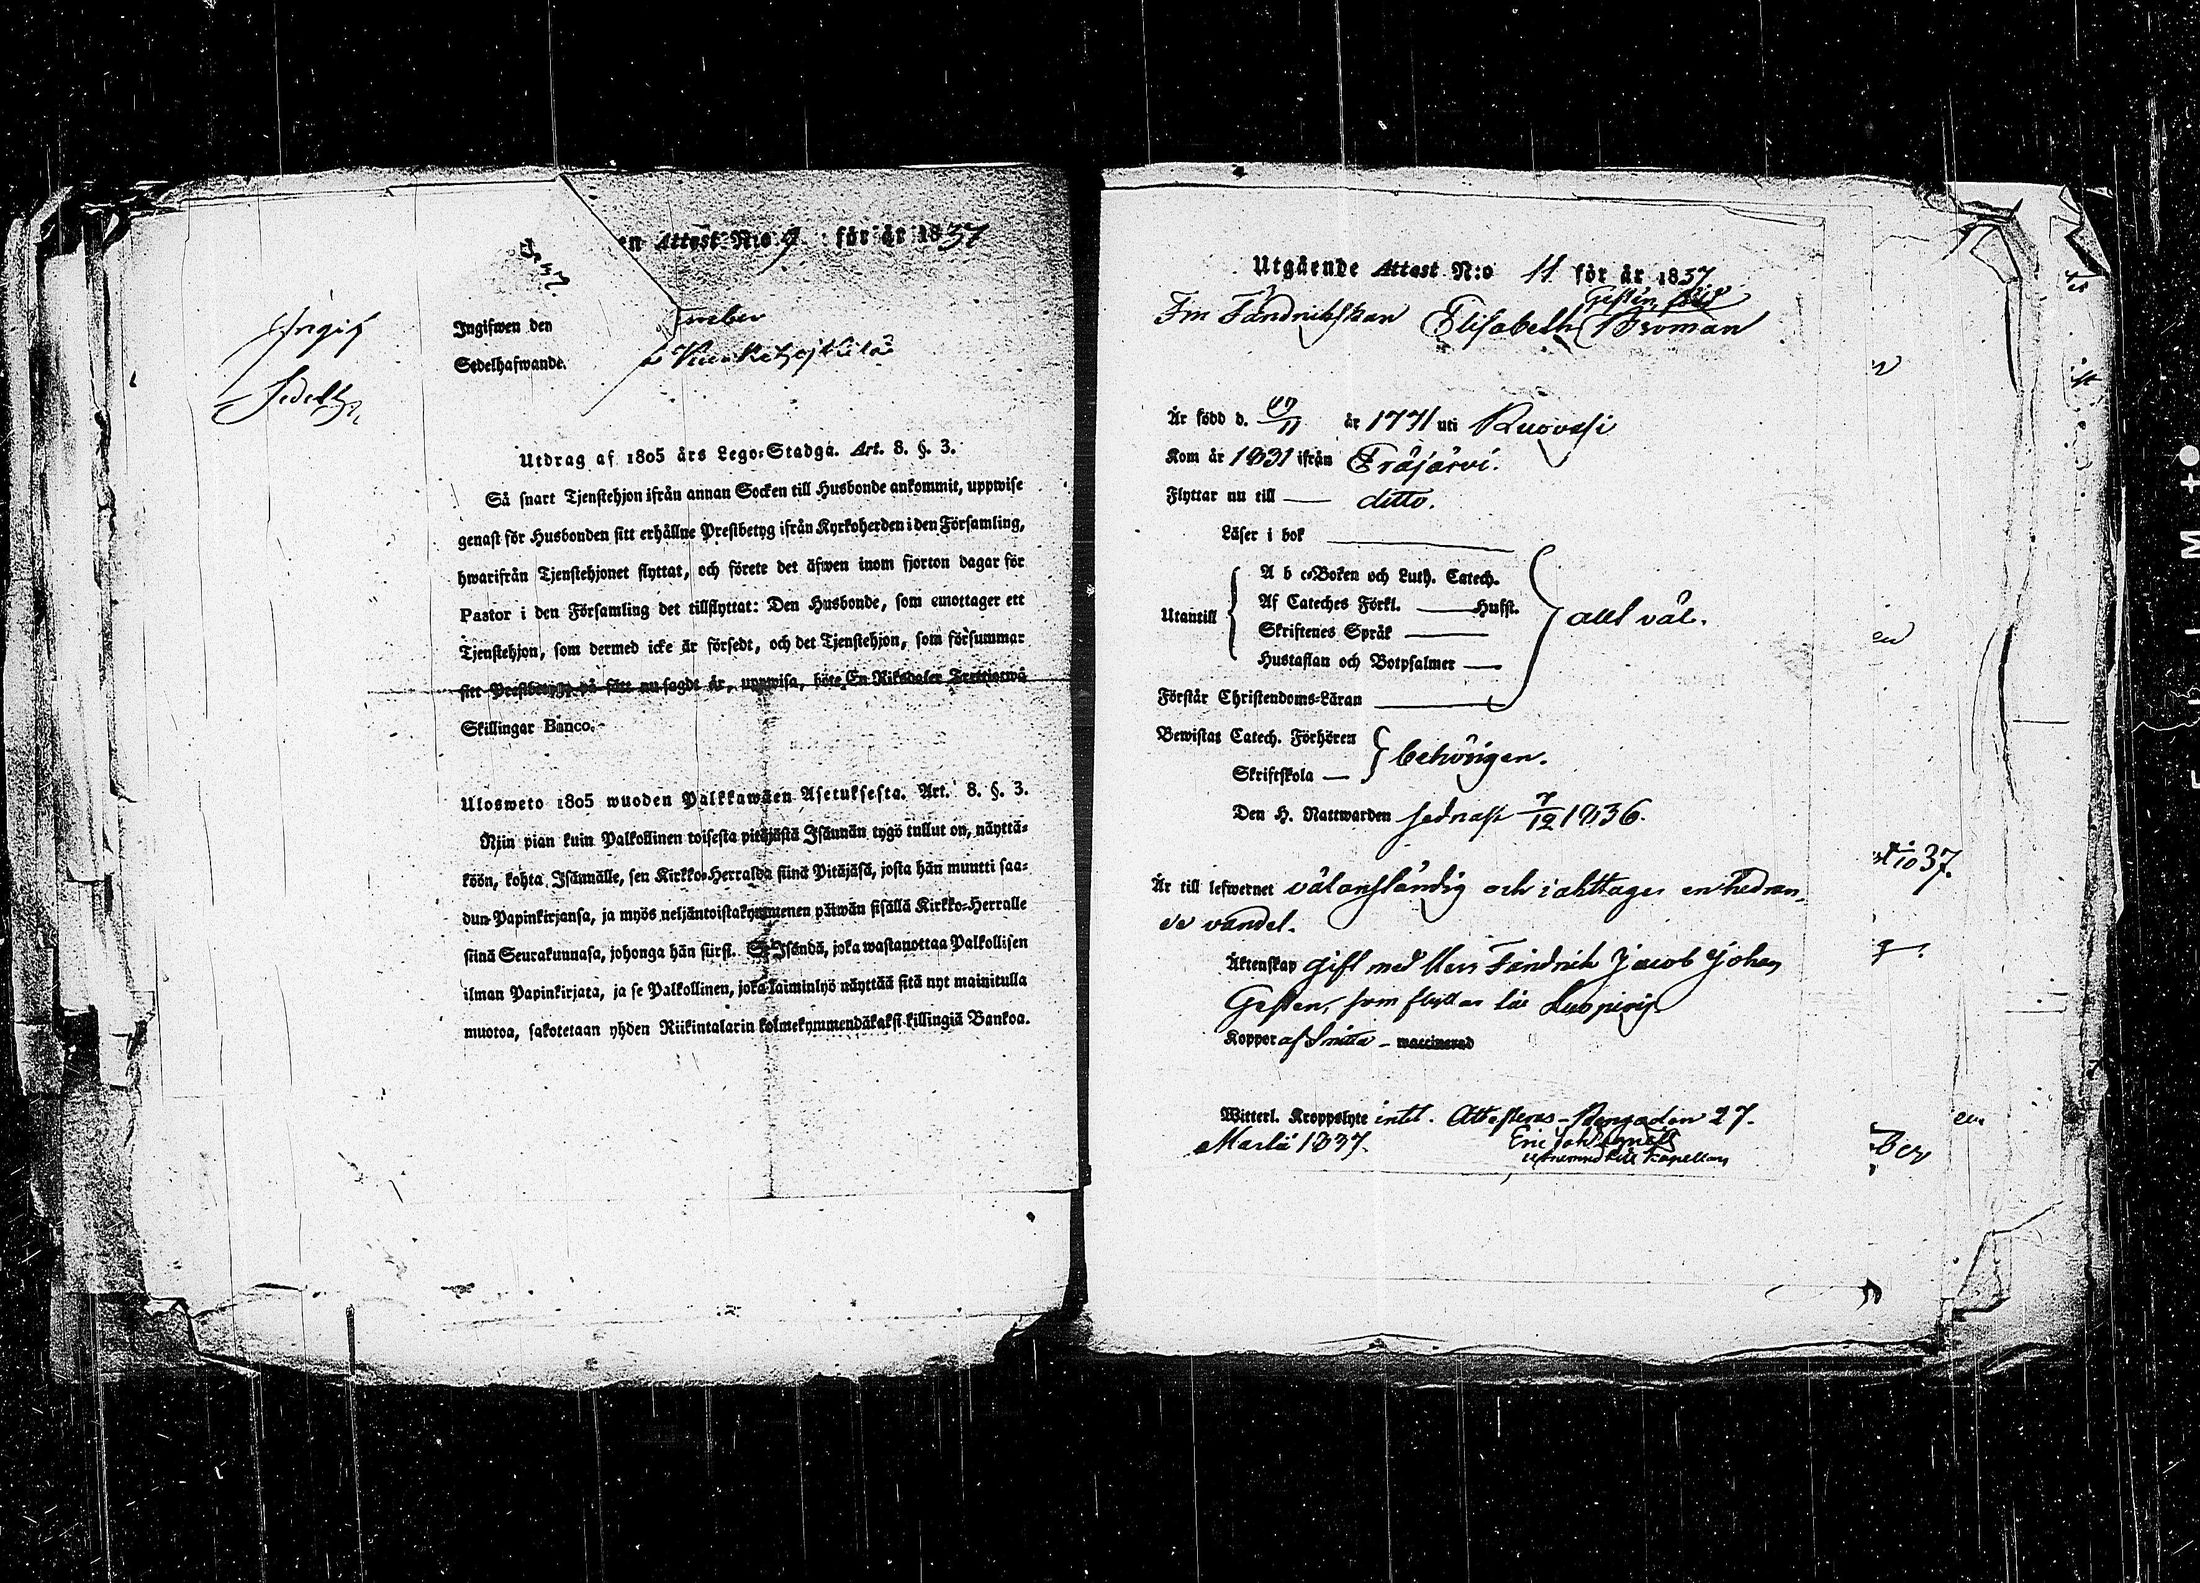 en Attest N:o 9. för år 1837
Ingif
Sedelh
Ingifwen den
Sedelhafwande.
Utdrag af 1805 års Lego-Stadga. Art. 8. §. 3.
Så snart Tjenstehjon ifrån annan Socken till Husbonde ankommit, uppwise
genast för Husbonden sitt erhållne Prestbetyg ifrån Kyrkoherden i den Församling,
hwarifrån Tjenstehjonet flyttat, och förete det äfwen inom fjorton dagar för
Pastor i den Församling det tillflyttat: Den Husbonde, som emottager ett
Tjenstehjon, som dermed icke är försedt, och det Tjenstehjon, som försummar
sitt Prestbetyg på sätt nu sagdt är, uppwisa, böte En Riksdaler Trettiotwå
Skillingar Banco.
Ulosweto 1805 wuoden Palkkawäen Asetuksesta. Art. 8. §. 3.
Niin pian kuin Palkollinen toisesta pitäjästä Isännän tygö tullut on, näyttä-
köön, kohta Isännälle, sen Kirkko-Herralda siinä Pitäjäsä, josta hän muutti saa-
dun Papinkirjansa, ja myös neljäntoistakymmenen päiwän sisällä Kirkko-Herralle
siinä Seurakunnasa, johonga hän siirst. Se Isändä, joka wastanottaa Palkollisen
ilman Papinkirjata, ja se Palkollinen, joka laiminlyö näyttää sitä nyt mainitulla
muotoa, sakotetaan yhden Riikintalarin kolmekymmendäkaksi killingiä Bankoa.
Utgående Attest N:o 11 för år 1837
Gestén, född
Fru Fändrickskan Elisabeth Broman
Är född d. 17/11 år 1771 uti Ruovesi
Kom år 1831 ifrån Eräjärvi.
Flyttar nu till — ditto.
Läser i bok
A b c-Boken och Luth. Catech.
Utantill Af Cateches Förkl. — Husst.
Skriftenes Språk — allt väl.
Hustaflan och Botpsalmer —
Förstår Christendoms-Läran
Bewistat Catech. Förhören
Skriftskola — behörigen.
Den H. Nattwarden sednast 7/12 1836.
Är till lefwernet välanständig och iakttager en hedran-
de vandel.
Äktenskap gift med Herr Fändrick Jacob Johan
Gesten, som flyttar till
Koppor af Smitta - waccinerad
Witterl. Kroppslyte intet. Attesteras 27.
Martii 1837.
Kapellan
10 37.
ber